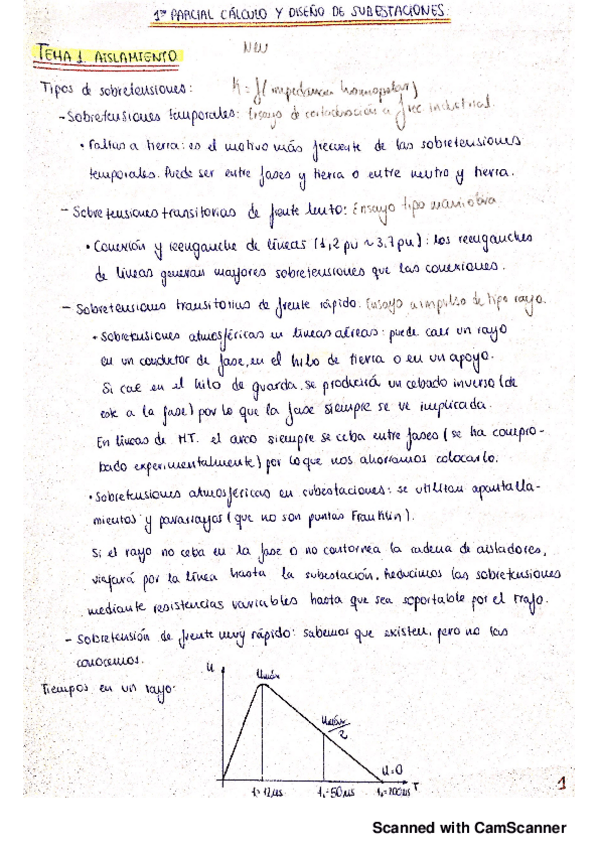 1er PARCIAL CÁLCULO Y DISEÑO DE SUBESTACIONES.
TEMA 1. AISLAMIENTO
Tipos de sobretensiones: K = f(impedancia homopolar)
- Sobretensiones temporales: Ensayo de a frec. industrial.
• Faltas a tierra: es el motivo más frecuente de las sobretensiones
temporales. Puede ser entre fases y tierra o entre neutro y tierra.
- Sobretensiones transitorias de frente lento: Ensayo tipo maniobra
• Conexión y reenganche de líneas (1,2 pu ~ 3,7 pu): los reenganches
de líneas generan mayores sobretensiones que las conexiones.
- Sobretensiones transitorias de frente rápido. Ensayo a impulso de tipo rayo.
• Sobretensiones atmosféricas en líneas aéreas: puede caer un rayo
en un conductor de fase, en el hilo de tierra o en un apoyo.
Si cae en el hilo de guarda, se producirá un cebado inverso (de
este a la fase) por lo que la fase siempre se ve implicada.
En líneas de MT. el arco siempre se ceba entre fases (se ha compro-
bado experimentalmente) por lo que nos ahorramos colocarlo.
• Sobretensiones atmosféricas en subestaciones: se utilizan apantalla-
mientos y pararrayos (que no son puntas Franklin).
Si el rayo no ceba en la fase o no contornea la cadena de aisladores,
viajará por la línea hasta la subestación. Reducimos las sobretensiones
mediante resistencias variables hasta que sea soportable por el trafo.
- Sobretensión de frente muy rápido: sabemos que existen, pero no las
conocemos.
Tiempos en un rayo.
U
Umáx
Umáx/2
U=0
T
t=1,2µs t₁=50µs t₂=200µs
1
Scanned with CamScanner